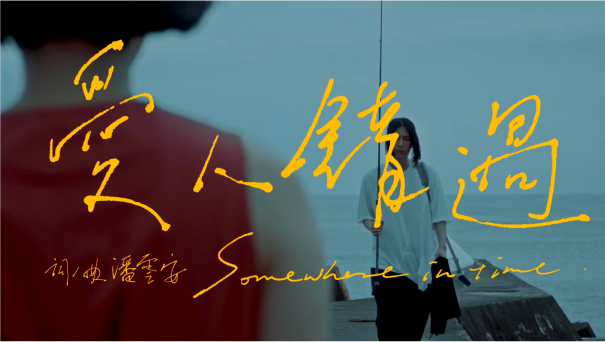 愛人錯過
詞/曲 潘雲安 Somewhere in time.